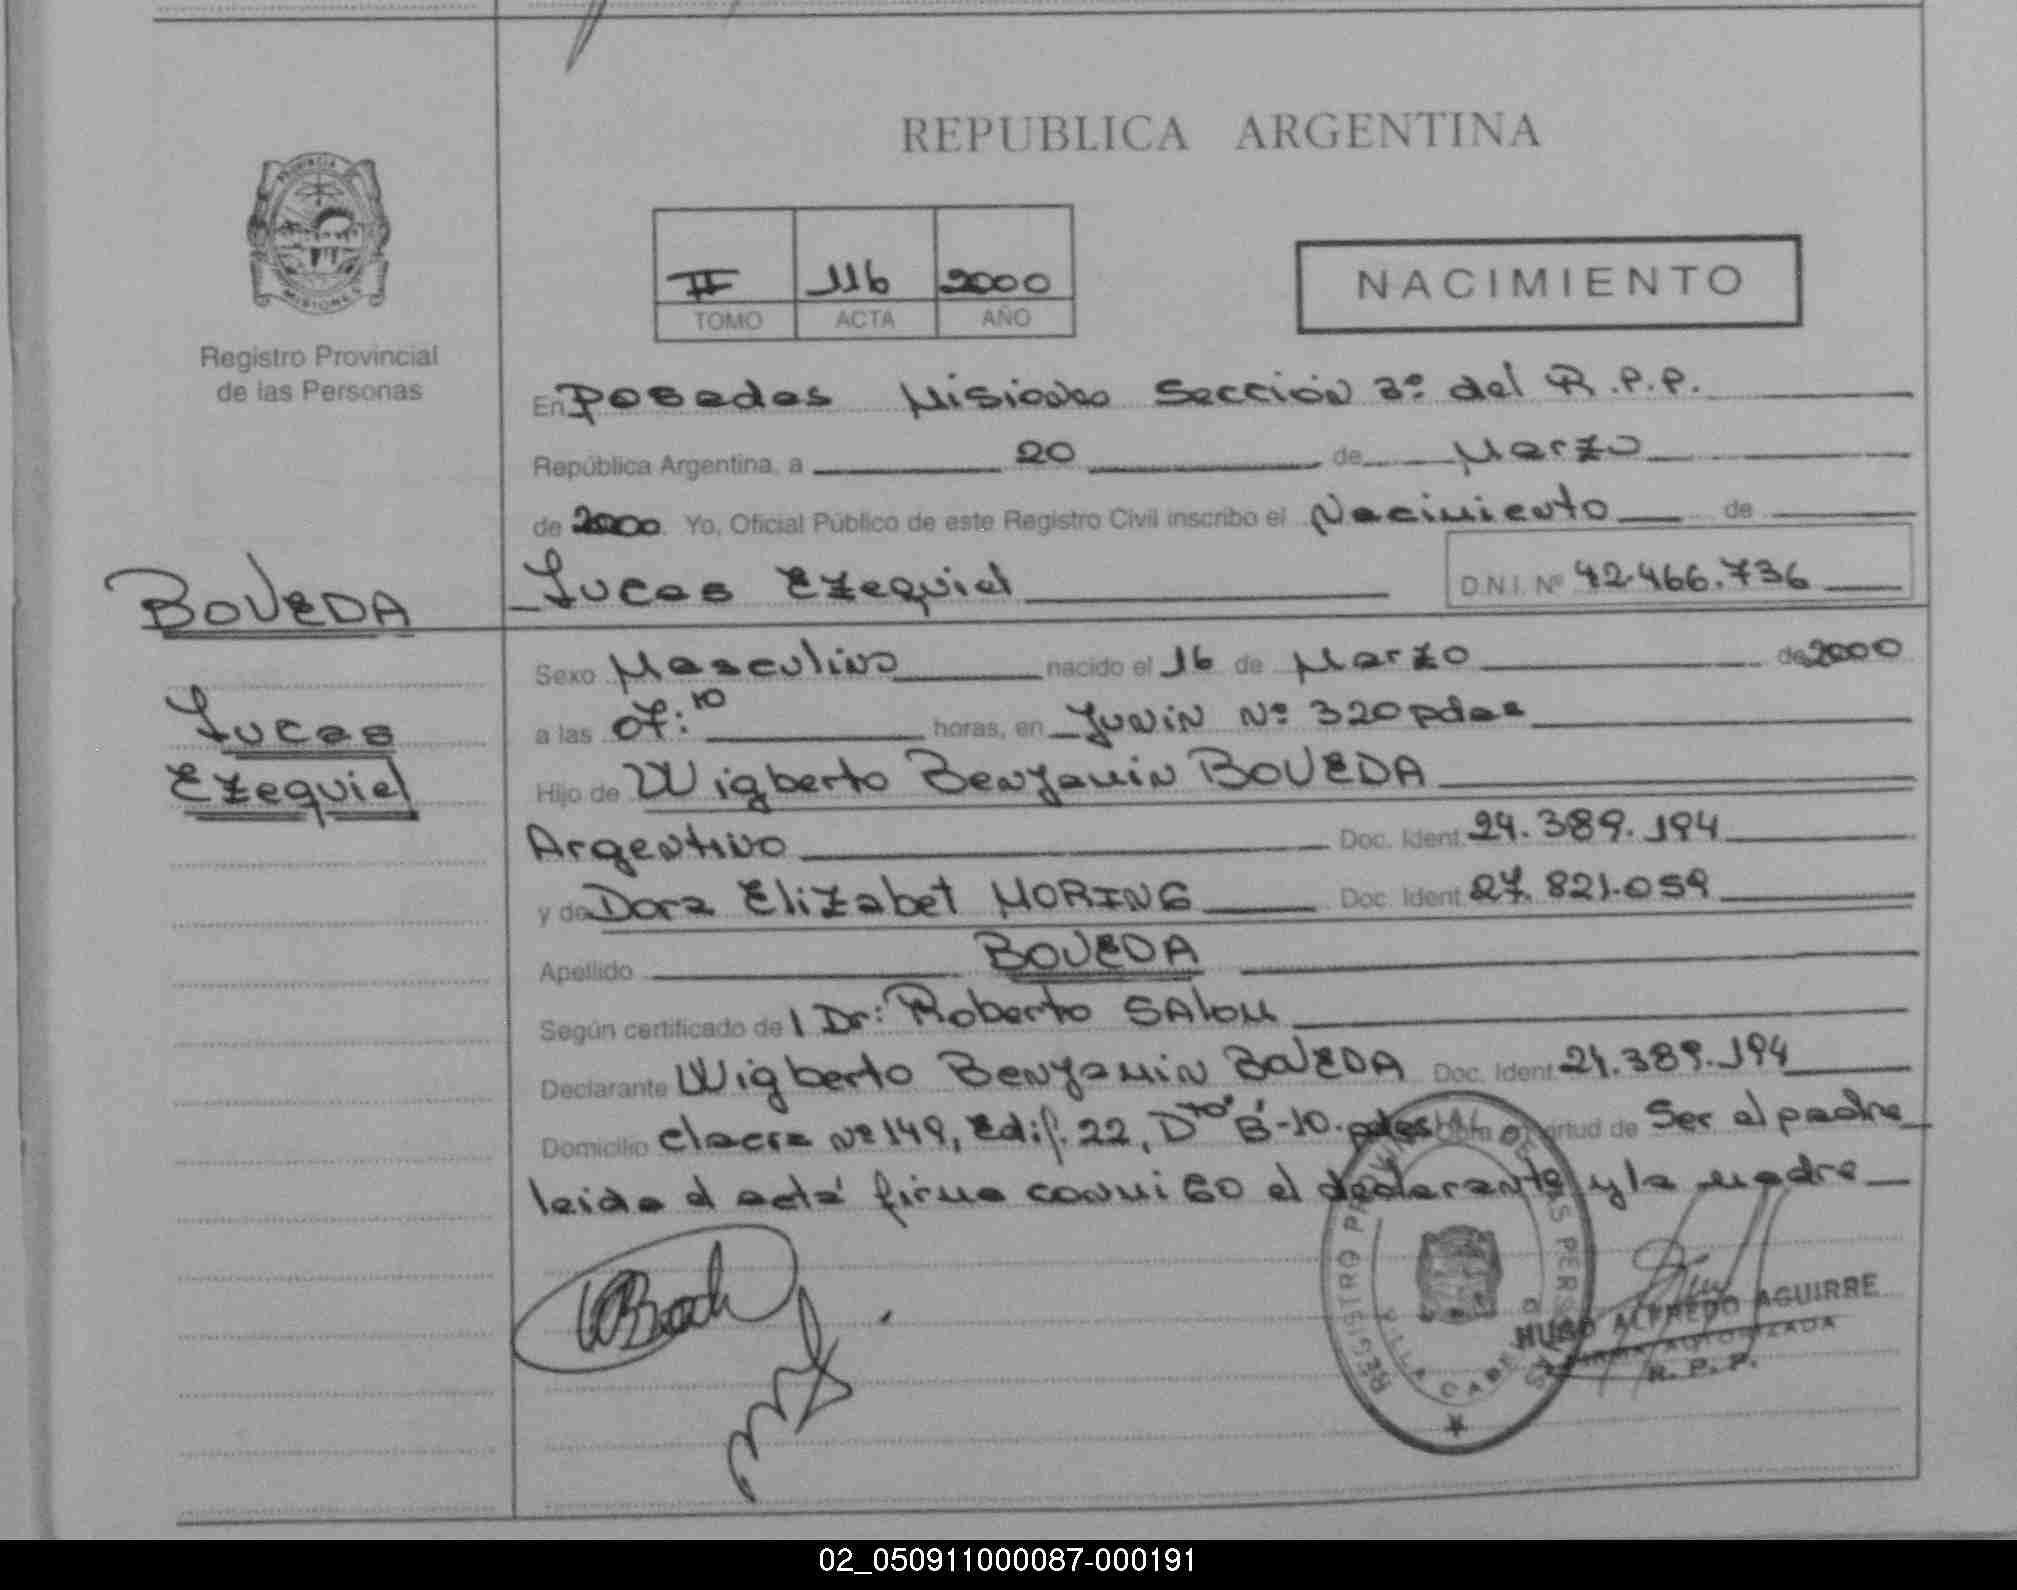 REPUBLICA ARGENTINA
PROVINCIA
MISIONES
Registro Provincial
de las Personas
II 116 2000
TOMO ACTA AÑO
NACIMIENTO
En Posadas Misiones Sección 3º del R.P.P.
República Argentina, a 20 de Marzo
de 2000. Yo, Oficial Público de este Registro Civil inscribo el Nacimiento de
BOVEDA
Lucas Ezequiel D.N.I. Nº 42.466.736
Lucas
Ezequiel
Sexo Masculino nacido el 16 de Marzo de 2000
a las 07:10 horas, en Junin Nº 320 pdas
Hijo de Wigberto Benjamin BOVEDA
Argentino Doc. Ident. 24.389.194
y de Dora Elizabet MORING Doc. Ident. 27.821.059
Apellido BOVEDA
Según certificado de l Dr: Roberto SALOM
Declarante Wigberto Benjamin BOVEDA Doc. Ident. 24.389.194
Domicilio chacra Nº 149, Edif. 22, Dto "B"-10. pdas Obra en virtud de Ser el padre
leida el acta firma conmigo el declarante y la madre
REGISTRO PROVINCIAL DE LAS PERSONAS
VILLA CABELLO
HUGO ALFREDO AGUIRRE
FIRMA AUTORIZADA
R. P. P.
02_050911000087-000191